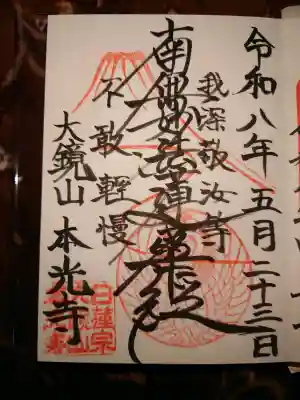 令和八年五月二十三日
我深敬汝等
南無妙法蓮華経
不敢軽慢
大鏡山 本光寺
日蓮宗